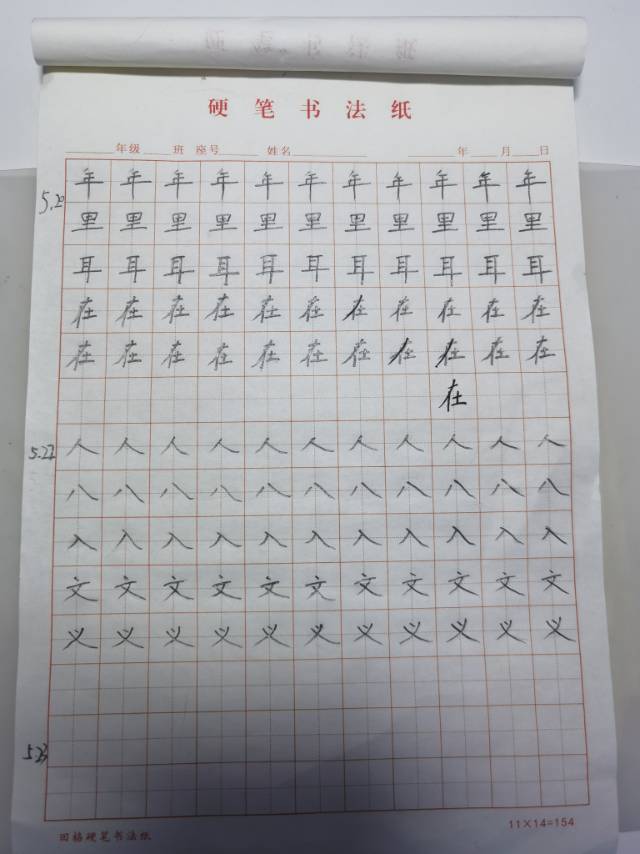 硬笔书法纸
年级 班 座号 姓名 年 月 日
5.20 年 年 年 年 年 年 年 年 年 年 年
里 里 里 里 里 里 里 里 里 里 里
耳 耳 耳 耳 耳 耳 耳 耳 耳 耳 耳
在 在 在 在 在 在 在 在 在 在 在
在 在 在 在 在 在 在 在 在 在 在
在
5.22 人 人 人 人 人 人 人 人 人 人 人
八 八 八 八 八 八 八 八 八 八 八
入 入 入 入 入 入 入 入 入 入 入
文 文 文 文 文 文 文 文 文 文 文
义 义 义 义 义 义 义 义 义 义 义
5.23
田格硬笔书法纸 11×14=154